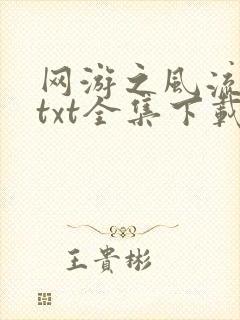 网游之风流
txt全集下載
王貴彬